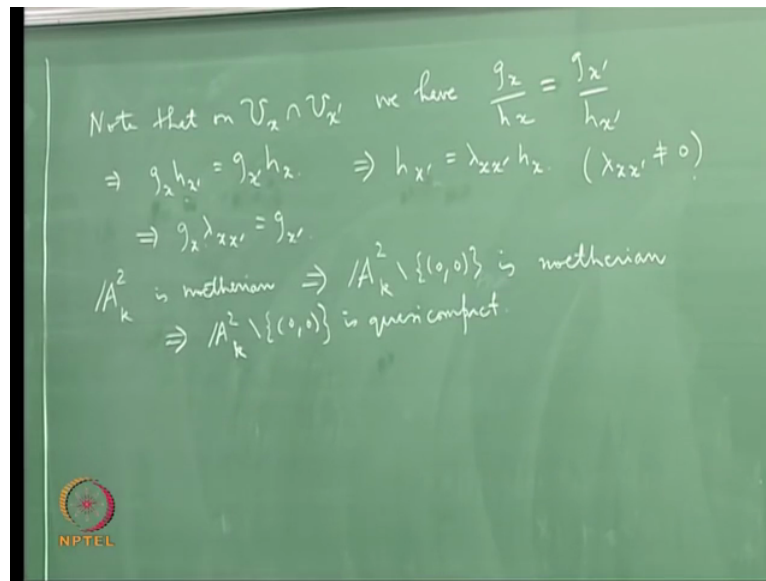 Note that on U_x ∩ U_x' we have g_x/h_x = g_x'/h_x'
⇒ g_x h_x' = g_x' h_x ⇒ h_x' = λ_xx' h_x (λ_xx' ≠ 0)
⇒ g_x λ_xx' = g_x'.
A²_k is noetherian ⇒ A²_k \ {(0,0)} is noetherian
⇒ A²_k \ {(0,0)} is quasicompact.
NPTEL